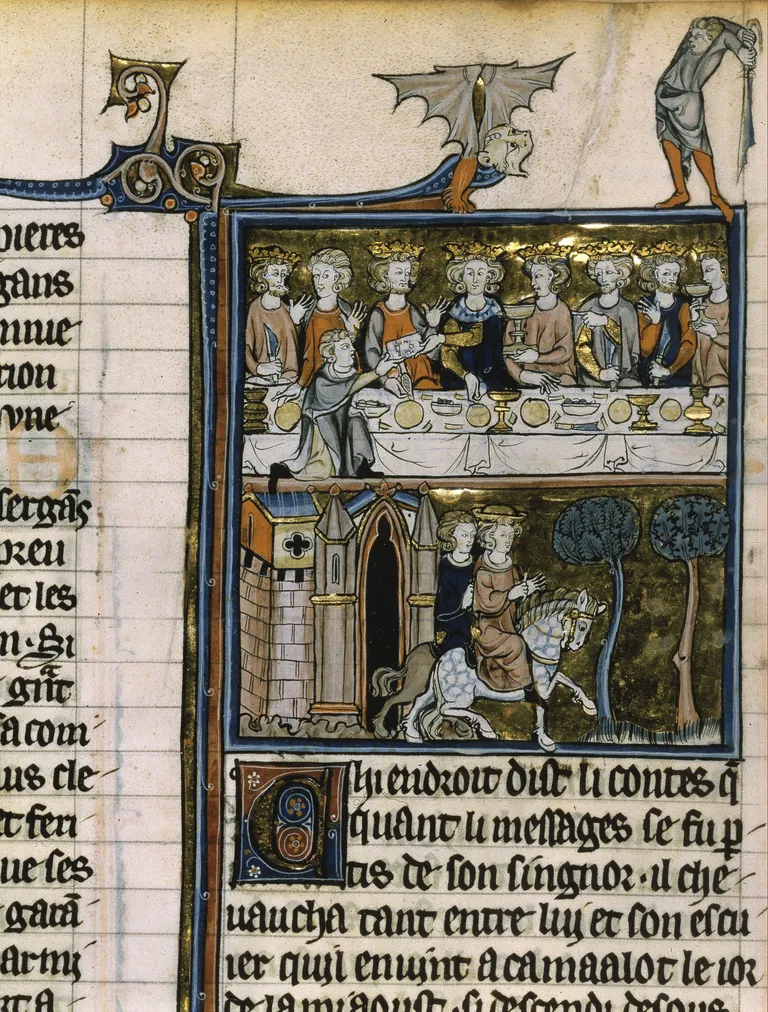 pieres
gans
miue
rion
vne
sergãs
preu
et les
n · Si
gñt
facom
us cle
et feri
ue ses
garã
army
rt a
Chi endroit dist li contes q̃
quant li messages se fu p
tis de son singnor · il che
uaucha tant entre luy et son escu
ier quil enuint a camaalot le ior
de la miaoust · si descendi desous